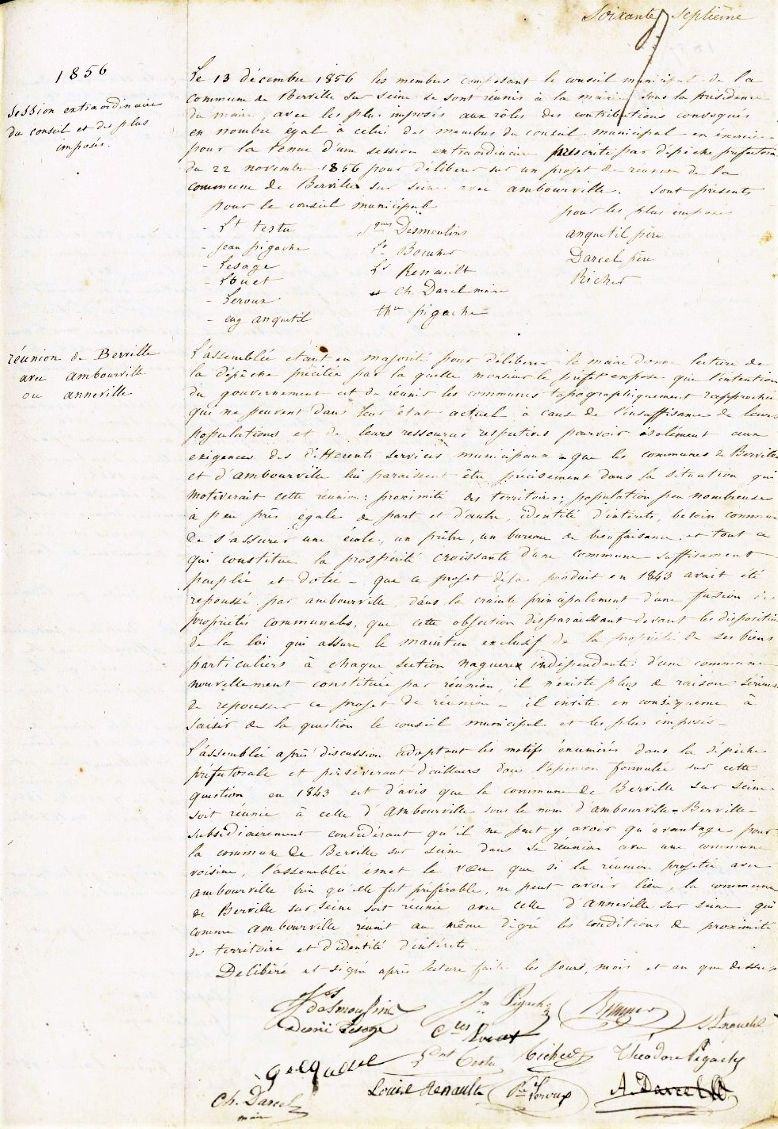 Soixante Septième
1856
Session extraordinaire
du conseil et des plus
imposés.
Le 13 décembre 1856 les membres composant le conseil municipal de la
commune de Berville sur seine se sont réunis à la mairie sous la présidence
du maire, avec les plus imposés aux rôles des contributions convoqués
en nombre égal à celui des membres du conseil municipal en exercice
pour la tenue d'une session extraordinaire prescrite par dépêche préfectorale
du 22 novembre 1856 pour délibérer sur un projet de réunion de la
commune de Berville sur seine avec ambourville. sont présents
pour le conseil municipal
pour les plus imposés
- Lt testu
- jean pigache
- Lesage
- Leroux
- eug anquetil
Desmoulins
Renault
et Ch. Darcel maire
thre pigache
anquetil père
Darcel père
Richer
réunion de Berville
avec ambourville
ou anneville
L'assemblée étant en majorité pour délibérer le maire donne lecture de
la dépêche précitée par la quelle monsieur le préfet expose que l'intention
du gouvernement est de réunir les communes topographiquement rapprochées
qui ne peuvent dans leur état actuel à cause de l'insuffisance de leurs
populations et de leurs ressources respectives pourvoir isolément aux
exigences des différents services municipaux - que les communes de Berville
et d'ambourville lui paraissent être précisément dans la situation qui
motiverait cette réunion: proximité des territoires, population peu nombreuse
à peu près égale de part et d'autre, identité d'intérêts, besoin commun
de s'assurer une école, un prêtre, un bureau de bienfaisance et tout ce
qui constitue la prospérité croissante d'une commune suffisament
peuplée et dotée - que ce projet déjà produit en 1843 avait été
repoussé par ambourville, dans la crainte principalement d'une fusion des
propriétés communales, que cette objection disparaissant devant les dispositions
de la loi qui assure le maintien exclusif de la propriété de ses biens
particuliers à chaque section naguères indépendante d'une commune
nouvellement constituée par réunion, il n'existe plus de raison sérieuse
de repousser ce projet de réunion - il invite en conséquence à
saisir de la question le conseil municipal et les plus imposés -
L'assemblée après discussion adoptant les motifs énumérés dans la dépêche
préfectorale et persévérant d'ailleurs dans l'opinion formulée sur cette
question en 1843 est d'avis que la commune de Berville sur seine
soit réunie à celle d'Ambourville sous le nom d'ambourville-Berville -
subsidiairement considérant qu'il ne peut y avoir qu'avantage pour
la commune de Berville sur seine dans sa réunion avec une commune
voisine, l'assemblée émet le vœu que si la réunion projetée avec
ambourville bien qu'elle fut préférable, ne peut avoir lieu, la commune
de Berville sur seine soit réunie avec celle d'anneville sur seine qui
comme ambourville réunit au même degré les conditions de proximité
de territoire et d'identité d'intérêts.
Délibéré et signé après lecture faite les jours, mois et an que dessus
Desmoulins
Jn Pigache
Lesage
Testu
Richer
Théodore Pigache
Ch. Darcel
maire
Louis Renault
Leroux
A. Darcel